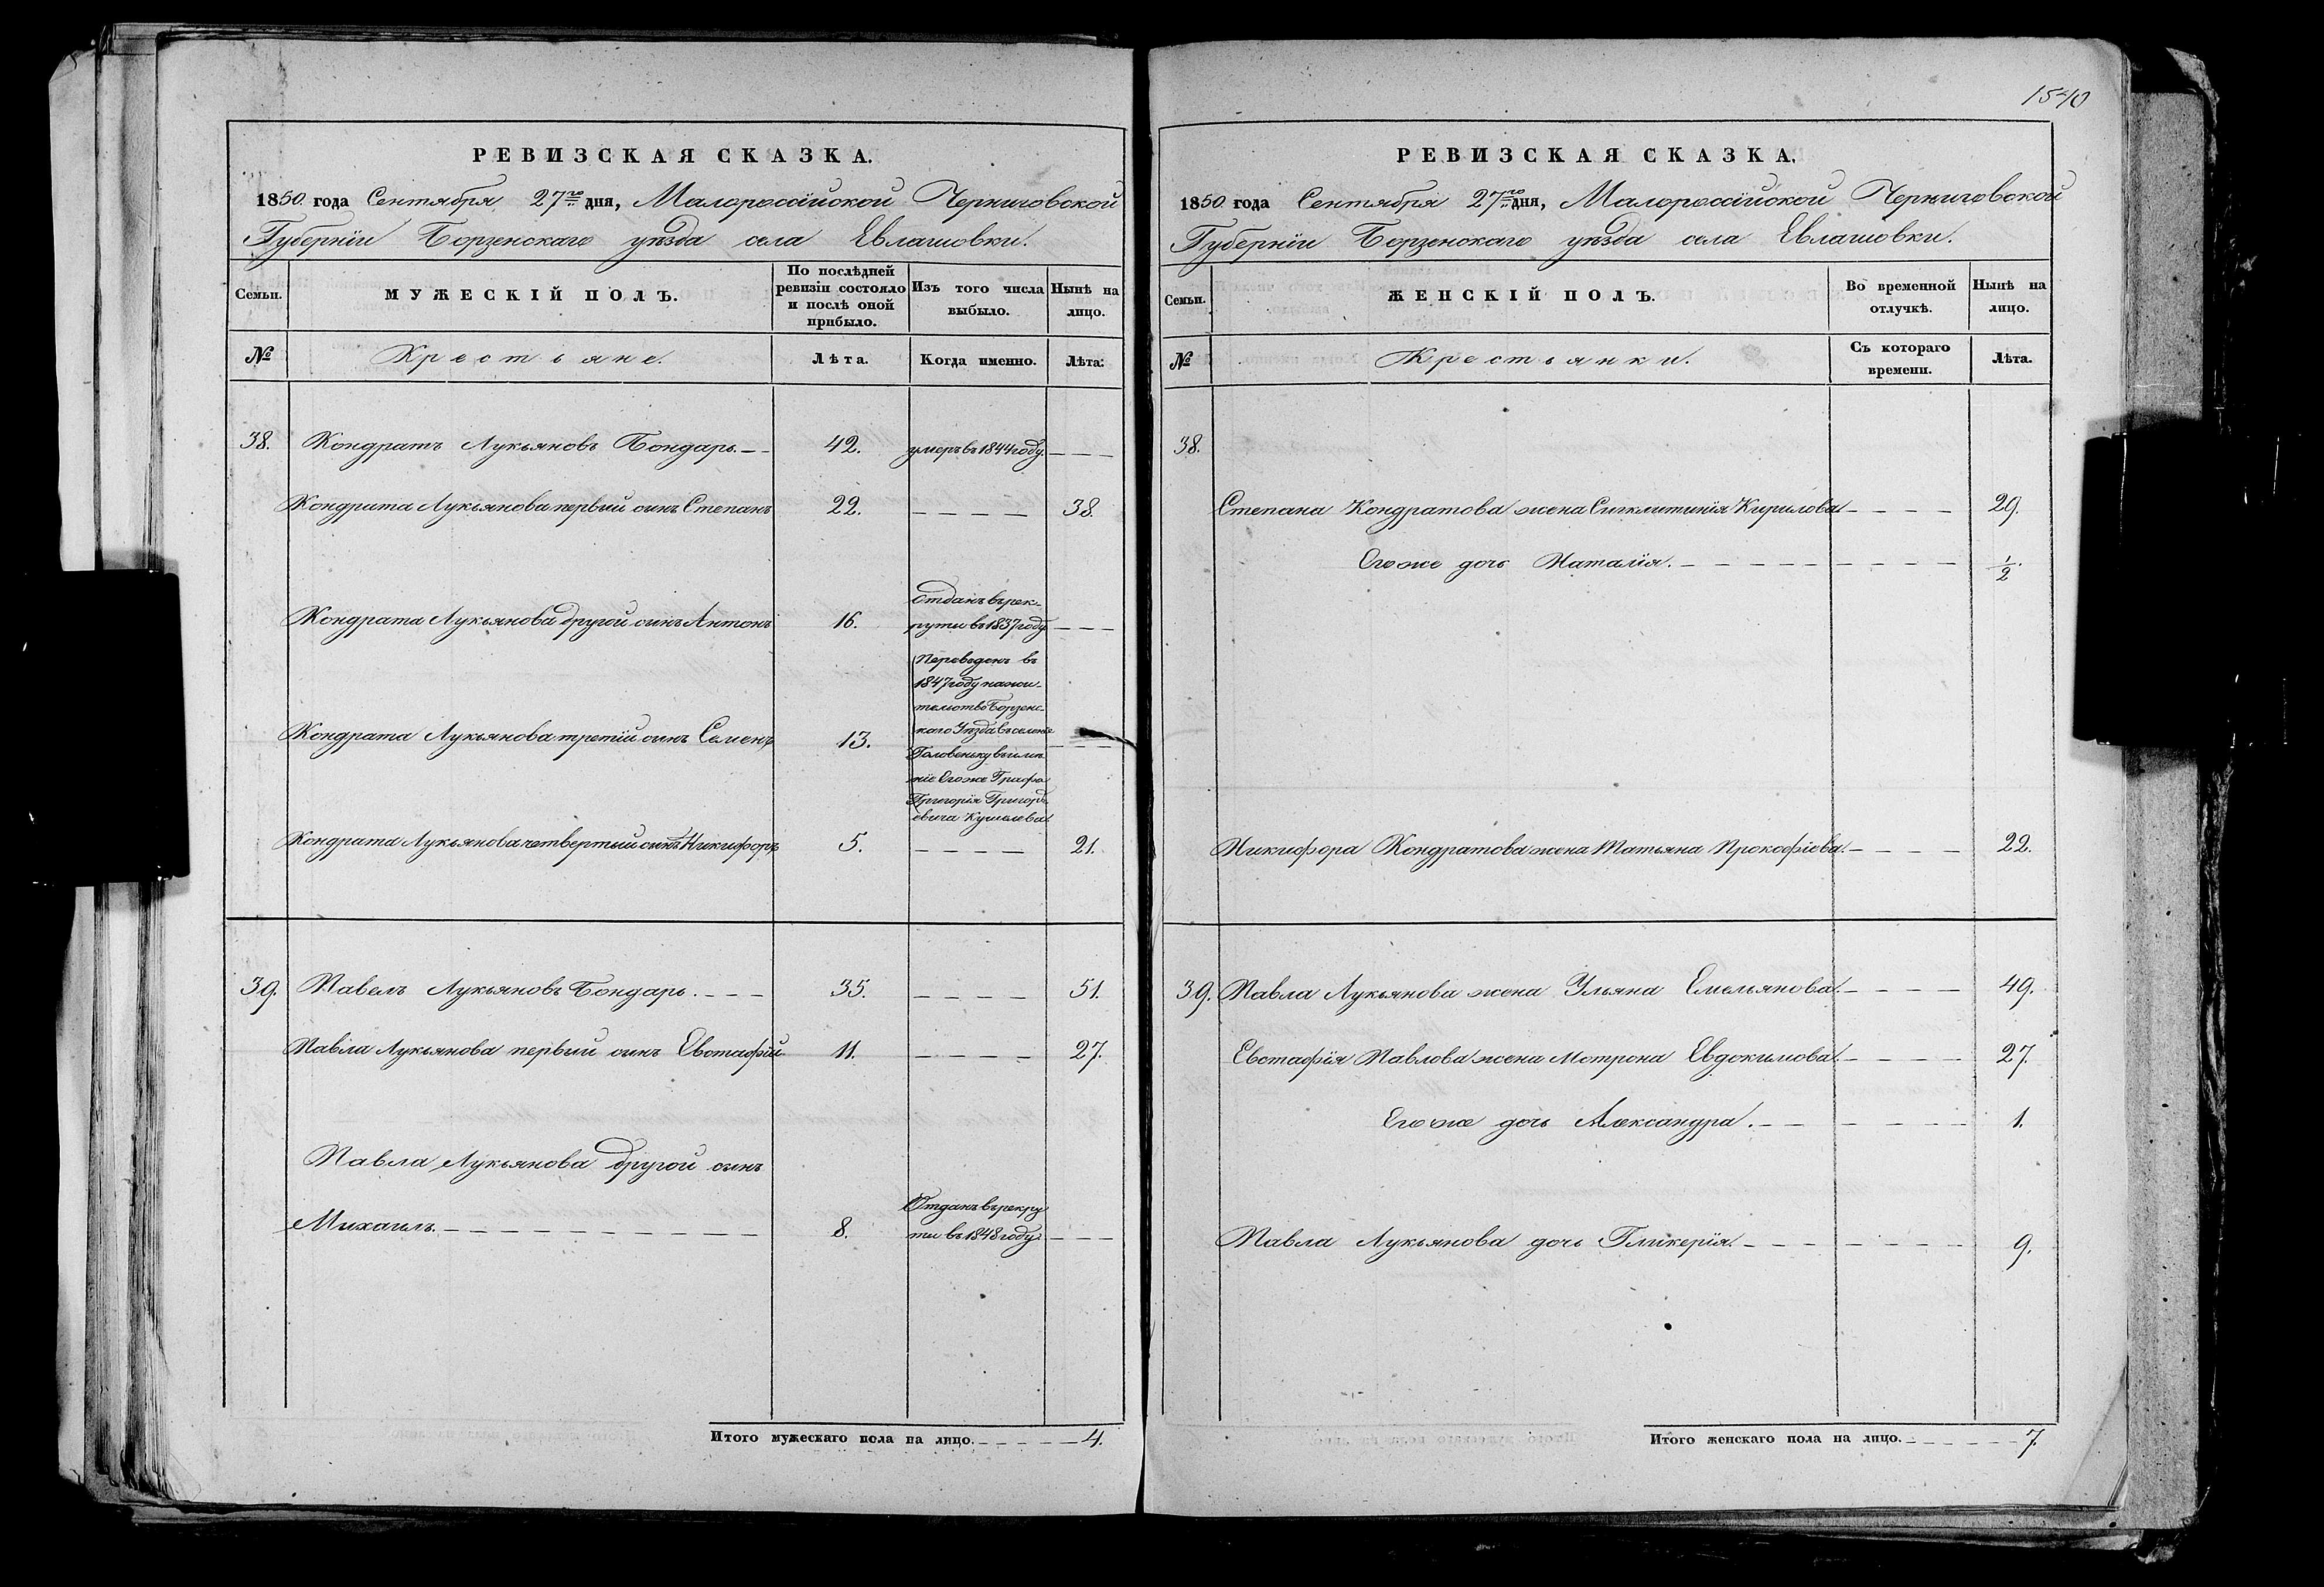 РЕВИЗСКАЯ СКАЗКА.
1850 года Сентября 27го дня, Малороссійской Черниговской
Губерніи Борзенскаго уѣзда села Евлашовки.
Семьи.
МУЖЕСКІЙ ПОЛЪ.
По послѣдней ревизіи состояло и послѣ оной прибыло.
Изъ того числа выбыло.
Нынѣ на лицо.
№ Крестьяне. Лѣта. Когда именно. Лѣта.
38. Кондратъ Лукьяновъ Бондарь. 42. умеръ въ 1844 году.
Кондрата Лукьянова первый сынъ Степанъ 22. 38.
Кондрата Лукьянова другой сынъ Антонъ 16. Отданъ въ рек-
руты въ 1837 году
Кондрата Лукьянова третій сынъ Семенъ 13. Переведенъ въ
1847 году на жи-
тельство Борзенс-
кого Уѣзда въ селеніе
Головеньку въ имѣ-
ніе Его же Графа
Григорія Григорь-
евича Кушелева
Кондрата Лукьянова четвертый сынъ Никифоръ 5. 21.
39. Павелъ Лукьяновъ Бондарь. 35. 51.
Павла Лукьянова первый сынъ Евстафій 11. 27.
Павла Лукьянова другой сынъ
Михаилъ. 8. Отданъ въ рекру
ты въ 1848 году
Итого мужескаго пола на лицо. 4.
1540
РЕВИЗСКАЯ СКАЗКА.
1850 года Сентября 27го дня, Малороссійской Черниговской
Губерніи Борзенскаго уѣзда села Евлашовки.
Семьи.
ЖЕНСКІЙ ПОЛЪ.
Во временной отлучкѣ.
Нынѣ на лицо.
№ Крестьянки. Съ котораго времени. Лѣта.
38.
Степана Кондратова жена Сигклитикія Кирилова 29.
Его же дочь Наталія. 1/2.
Никифора Кондратова жена Татьяна Прокофіева. 22.
39. Павла Лукьянова жена Ульяна Емельянова. 49.
Евстафія Павлова жена Мотрона Евдокимова. 27.
Его же дочь Александра. 1.
Павла Лукьянова дочь Гликерія. 9.
Итого женскаго пола на лицо. 7.